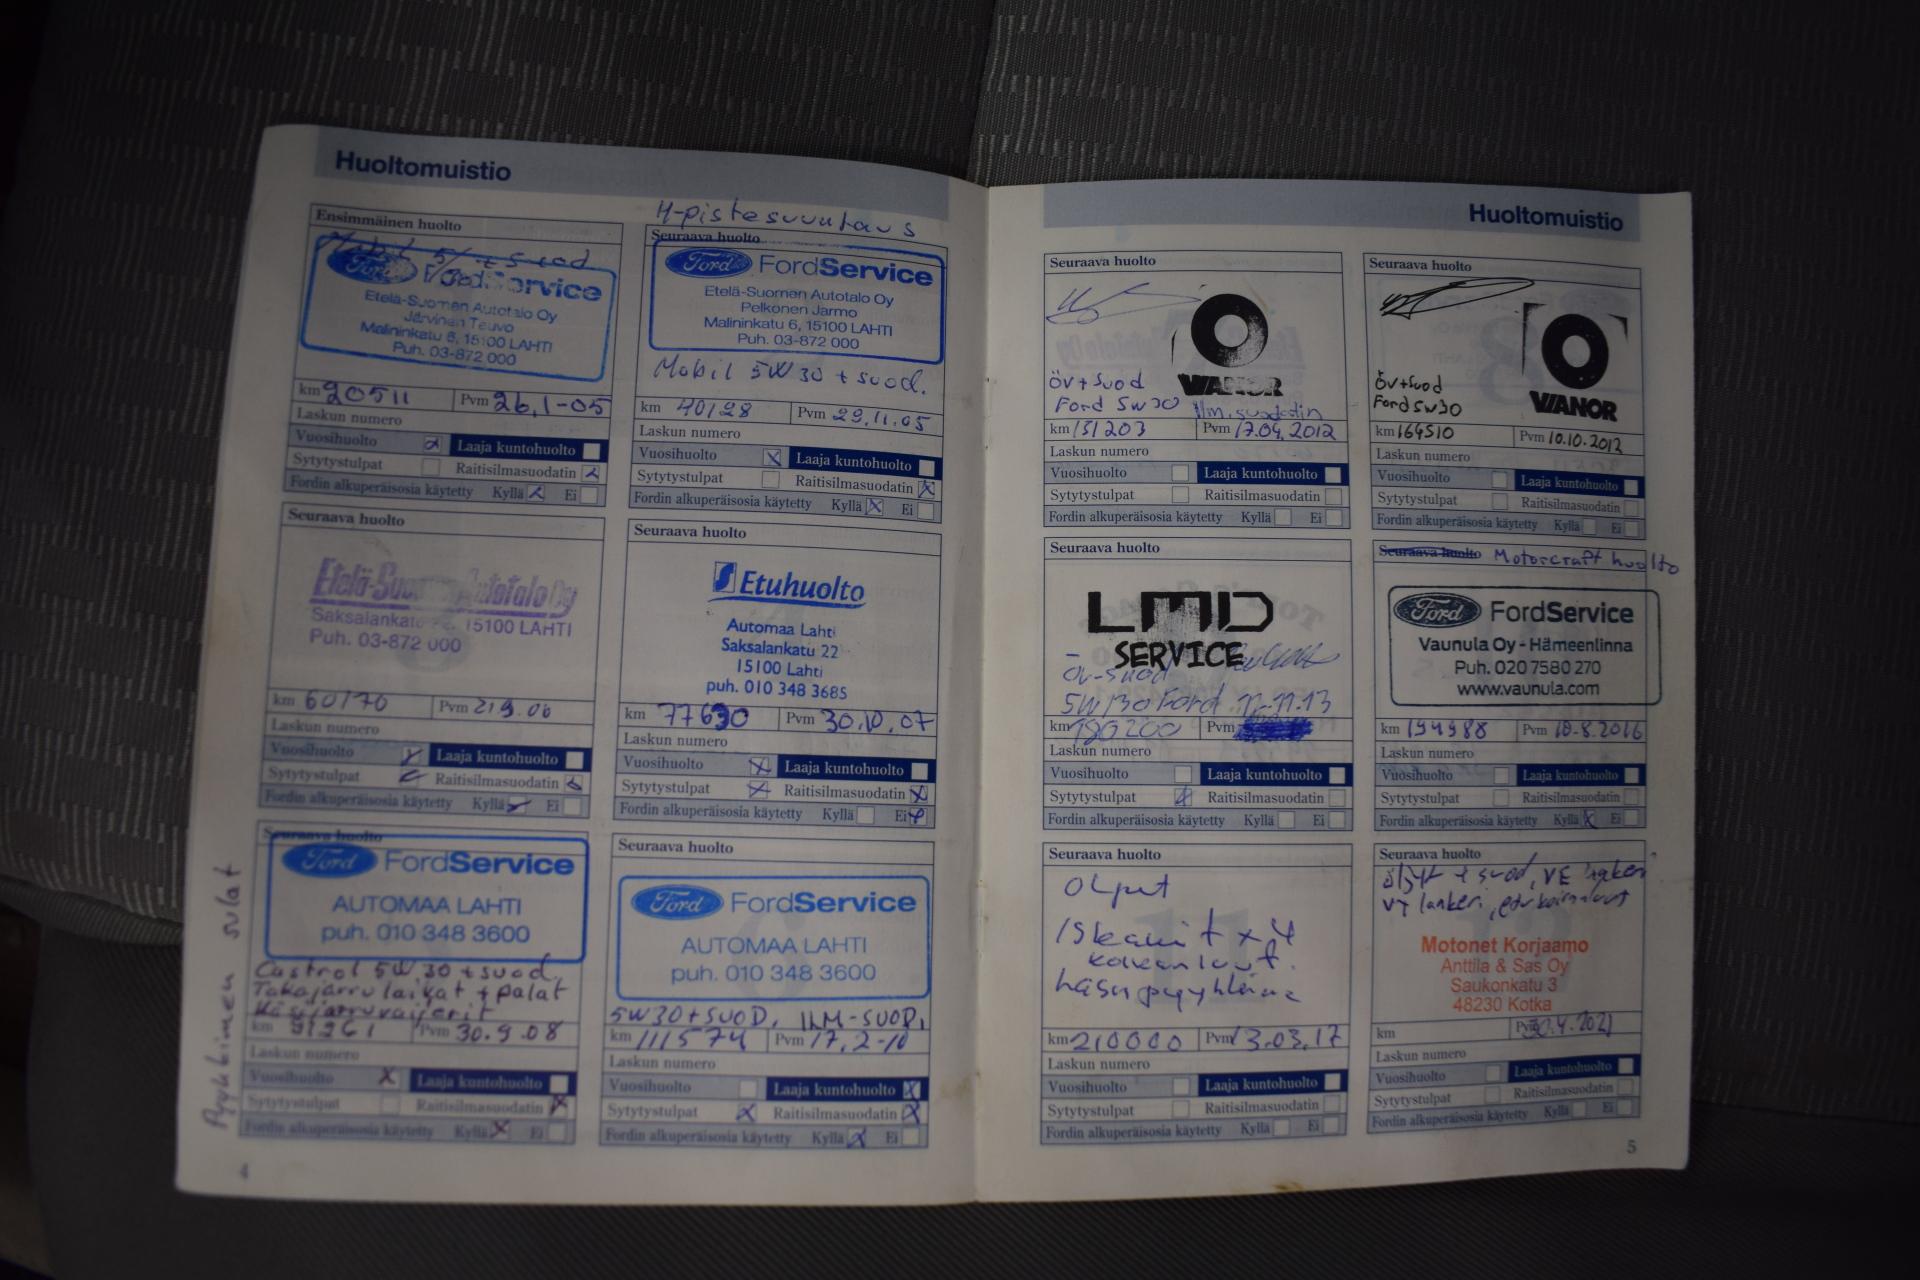 Huoltomuistio
Ensimmäinen huolto
Ford FordService
Etelä-Suomen Autotalo Oy
Järvinen Teuvo
Malininkatu 6, 15100 LAHTI
Puh. 03-872 000
km 20511 Pvm 26.1-05
Laskun numero
Vuosihuolto Laaja kuntohuolto
Sytytystulpat Raitisilmasuodatin
Fordin alkuperäisosia käytetty Kyllä Ei
4-pistesuuntaus
Seuraava huolto
Ford FordService
Etelä-Suomen Autotalo Oy
Pelkonen Jarmo
Malininkatu 6, 15100 LAHTI
Puh. 03-872 000
Mobil 5W30 + suod.
km 40128 Pvm 29.11.05
Laskun numero
Vuosihuolto Laaja kuntohuolto
Sytytystulpat Raitisilmasuodatin
Fordin alkuperäisosia käytetty Kyllä Ei
Seuraava huolto
Etelä-Suomen Autotalo Oy
Saksalankatu 15100 LAHTI
Puh. 03-872 000
km 60170 Pvm 21.9.06
Laskun numero
Vuosihuolto Laaja kuntohuolto
Sytytystulpat Raitisilmasuodatin
Fordin alkuperäisosia käytetty Kyllä Ei
Seuraava huolto
Etuhuolto
Automaa Lahti
Saksalankatu 22
15100 Lahti
puh. 010 348 3685
km 77690 Pvm 30.10.07
Laskun numero
Vuosihuolto Laaja kuntohuolto
Sytytystulpat Raitisilmasuodatin
Fordin alkuperäisosia käytetty Kyllä Ei
Seuraava huolto
Ford FordService
AUTOMAA LAHTI
puh. 010 348 3600
Castrol 5W30 + suod.
Takajarrulaikat + palat
Käsijarruvaijerit
km 91961 Pvm 30.9.08
Laskun numero
Vuosihuolto Laaja kuntohuolto
Sytytystulpat Raitisilmasuodatin
Fordin alkuperäisosia käytetty Kyllä Ei
Pyyhkimen sulat
Seuraava huolto
Ford FordService
AUTOMAA LAHTI
puh. 010 348 3600
5W30+SUOD, ILM-SUOD,
km 111574 Pvm 17.2-10
Laskun numero
Vuosihuolto Laaja kuntohuolto
Sytytystulpat Raitisilmasuodatin
Fordin alkuperäisosia käytetty Kyllä Ei
4
Huoltomuistio
Seuraava huolto
WIANOR
öv+suod
Ford 5w30 Ilm.suodatin
km 131203 Pvm 17.04.2012
Laskun numero
Vuosihuolto Laaja kuntohuolto
Sytytystulpat Raitisilmasuodatin
Fordin alkuperäisosia käytetty Kyllä Ei
Seuraava huolto
öv+suod
Ford 5w30
VIANOR
km 164510 Pvm 10.10.2012
Laskun numero
Vuosihuolto Laaja kuntohuolto
Sytytystulpat Raitisilmasuodatin
Fordin alkuperäisosia käytetty Kyllä Ei
Seuraava huolto
LMD
SERVICE
öv-suod
5W30 Ford 12.11.13
km 180200 Pvm
Laskun numero
Vuosihuolto Laaja kuntohuolto
Sytytystulpat Raitisilmasuodatin
Fordin alkuperäisosia käytetty Kyllä Ei
Seuraava huolto Motorcraft huolto
Ford FordService
Vaunula Oy - Hämeenlinna
Puh. 020 7580 270
www.vaunula.com
km 194988 Pvm 18.8.2016
Laskun numero
Vuosihuolto Laaja kuntohuolto
Sytytystulpat Raitisilmasuodatin
Fordin alkuperäisosia käytetty Kyllä Ei
Seuraava huolto
Iskarit x 4
km 210000 Pvm 13.03.17
Laskun numero
Vuosihuolto Laaja kuntohuolto
Sytytystulpat Raitisilmasuodatin
Fordin alkuperäisosia käytetty Kyllä Ei
Seuraava huolto
öljyt + suod, VE
Motonet Korjaamo
Anttila & Sas Oy
Saukonkatu 3
48230 Kotka
km Pvm 30.4.2021
Laskun numero
Vuosihuolto Laaja kuntohuolto
Sytytystulpat Raitisilmasuodatin
Fordin alkuperäisosia käytetty Kyllä Ei
5